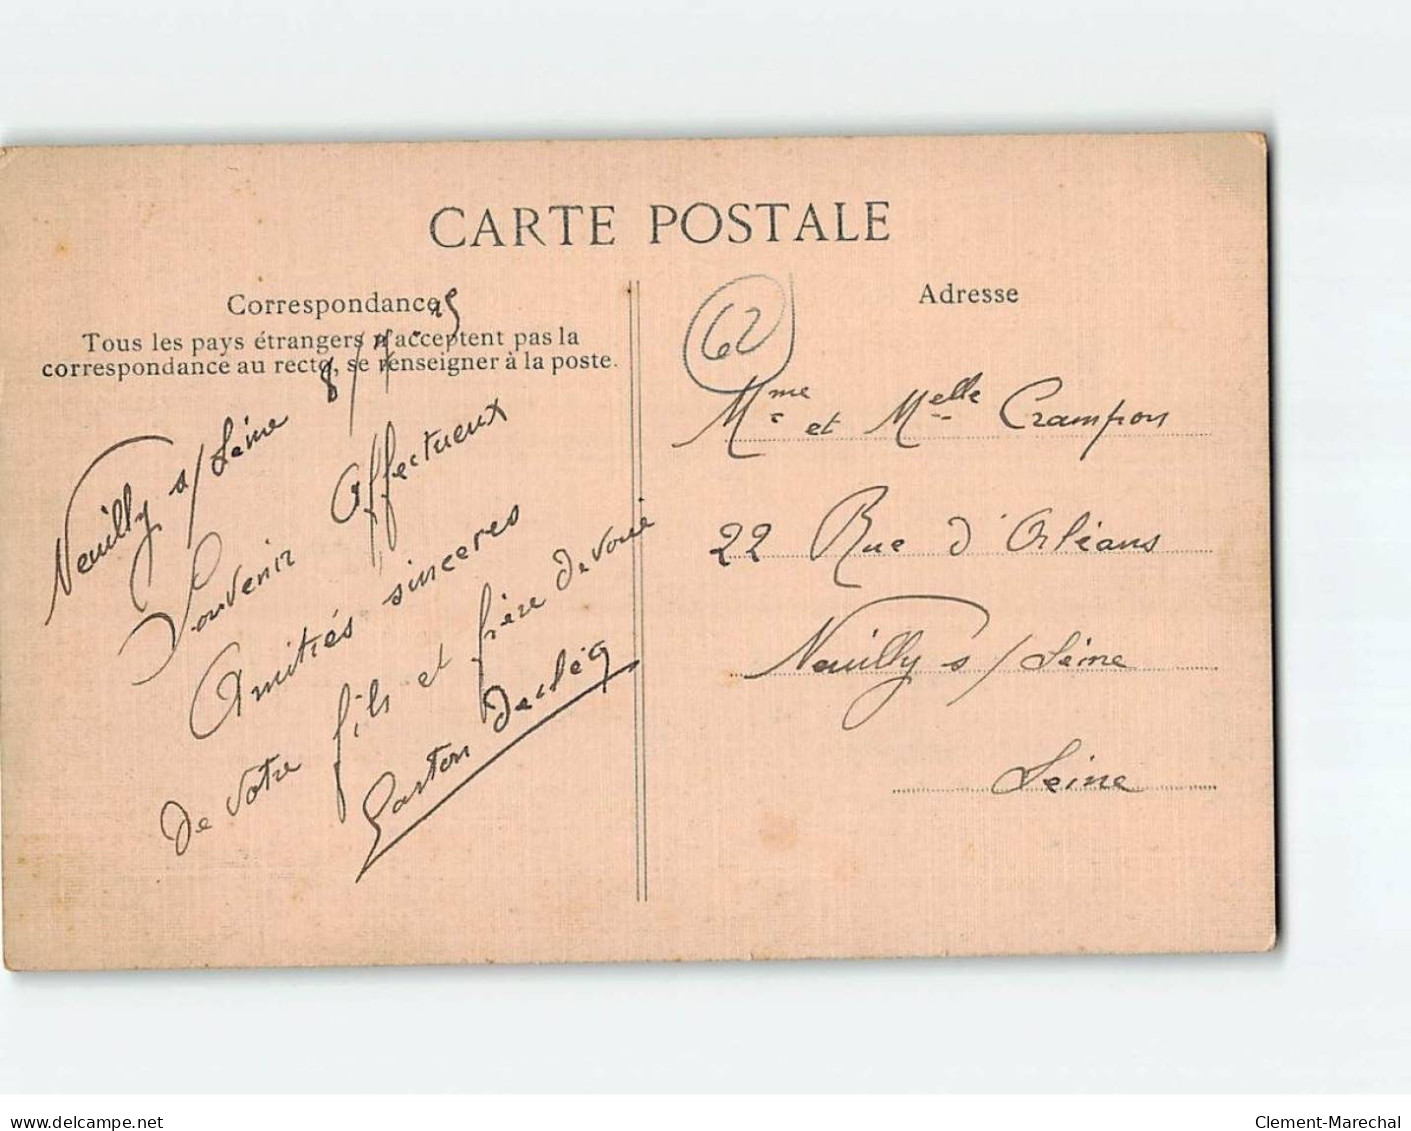 CARTE POSTALE
Correspondance
Tous les pays étrangers n'acceptent pas la
correspondance au recto, se renseigner à la poste.
Neuilly s/Seine 8/
Souvenir Affectueux
Amitiés sincères
De votre fils et frère Devoué
Gaston
Adresse
62
Mme et Melle Crampon
22 Rue d'Orléans
Neuilly s/Seine
Seine
www.delcampe.net
Clement-Marechal